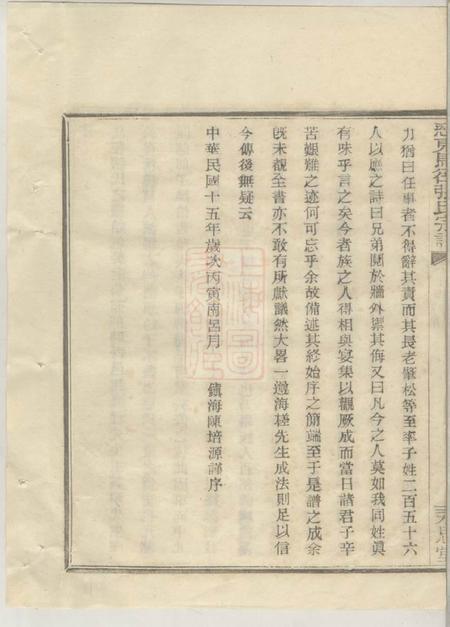 力猶曰任事者不得辭其責而其長老肇松等至率子姓二百五十六
人以應之詩曰兄弟鬩於牆外禦其侮又曰凡今之人莫如我同姓眞
有味乎言之矣今者族之人得相與宴集以觀厥成而當日諸君子辛
苦艱難之迹何可忘乎余故備述其終始序之簡端至于是譜之成余
旣未觀全書亦不敢有所獻議然大畧一遵海槎先生成法則足以信
今傳後無疑云
中華民國十五年歲次丙寅南呂月 鎮海陳培源謹序